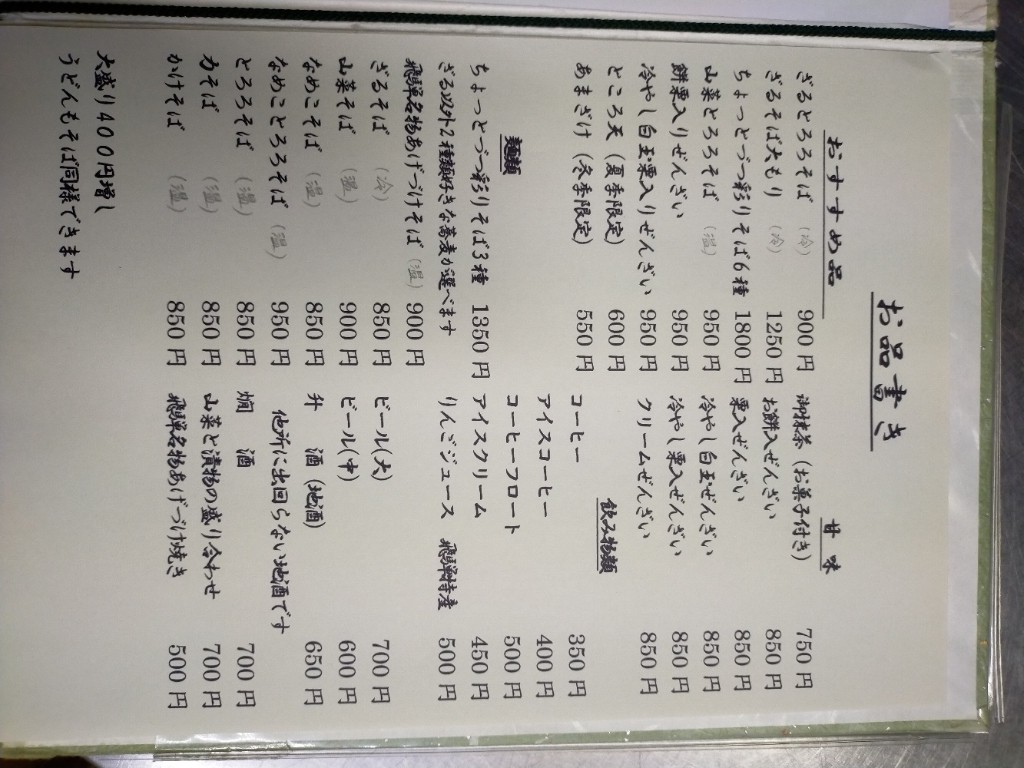 お品書き
おすすめ品
ざるとろろそば (冷) 900円
ざるそば大もり (冷) 1250円
ちょっとづつ彩りそば6種 1800円
山菜とろろそば (温) 950円
餅栗入りぜんざい 950円
冷やし白玉栗入りぜんざい 950円
ところ天 (夏季限定) 600円
あまざけ (冬季限定) 550円
麺類
ちょっとづつ彩りそば3種 1350円
ざる以外2種類好きな蕎麦が選べます
飛騨名物あげづけそば (温) 900円
ざるそば (冷) 850円
山菜そば (温) 900円
なめこそば (温) 850円
なめことろろそば (温) 950円
とろろそば (温) 850円
力そば (温) 850円
かけそば (温) 850円
大盛り400円増し
うどんもそば同様できます
甘味
御抹茶 (お菓子付き) 750円
お餅入ぜんざい 850円
栗入ぜんざい 850円
冷やし白玉ぜんざい 850円
冷やし栗入ぜんざい 850円
クリームぜんざい 850円
飲み物類
コーヒー 350円
アイスコーヒー 400円
コーヒーフロート 500円
アイスクリーム 450円
りんごジュース 飛騨特産 500円
ビール(大) 700円
ビール(中) 600円
升 酒 (地酒) 650円
他所に出回らない地酒です
燗 酒 700円
山菜と漬物の盛り合わせ 700円
飛騨名物あげづけ焼き 500円